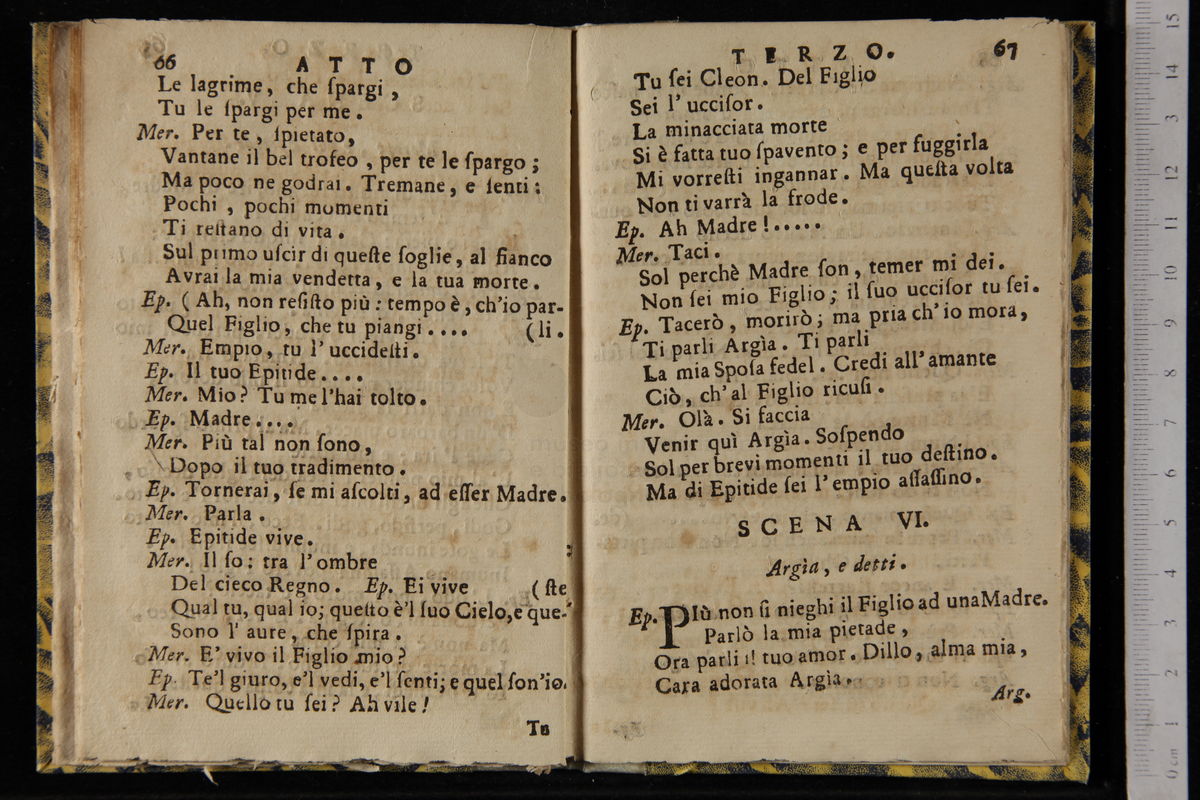 66 ATTO
Le lagrime, che ſpargi,
Tu le ſpargi per me.
Mer. Per te, ſpietato,
Vantane il bel trofeo, per te le ſpargo;
Ma poco ne godrai. Tremane, e ſenti:
Pochi, pochi momenti
Ti reſtano di vita.
Sul primo uſcir di queſte ſoglie, al fianco
Avrai la mia vendetta, e la tua morte.
Ep. (Ah, non reſiſto più: tempo è, ch'io par-
Quel Figlio, che tu piangi.... (li.
Mer. Empio, tu l'uccideſti.
Ep. Il tuo Epitide....
Mer. Mio? Tu me l'hai tolto.
Ep. Madre....
Mer. Più tal non ſono,
Dopo il tuo tradimento.
Ep. Tornerai, ſe mi aſcolti, ad eſſer Madre.
Mer. Parla.
Ep. Epitide vive.
Mer. Il ſo: tra l'ombre
Del cieco Regno. Ep. Ei vive (ſte
Qual tu, qual io; queſto è'l ſuo Cielo, e que-
Sono l'aure, che ſpira.
Mer. E' vivo il Figlio mio?
Ep. Te'l giuro, e'l vedi, e'l ſenti; e quel ſon'io.
Mer. Quello tu ſei? Ah vile!
Tu
TERZO. 67
Tu ſei Cleon. Del Figlio
Sei l'ucciſor.
La minacciata morte
Si è fatta tuo ſpavento; e per fuggirla
Mi vorreſti ingannar. Ma queſta volta
Non ti varrà la frode.
Ep. Ah Madre!.....
Mer. Taci.
Sol perchè Madre ſon, temer mi dei.
Non ſei mio Figlio; il ſuo ucciſor tu ſei.
Ep. Tacerò, morirò; ma pria ch'io mora,
Ti parli Argìa. Ti parli
La mia Spoſa fedel. Credi all'amante
Ciò, ch'al Figlio ricuſi.
Mer. Olà. Si faccia
Venir quì Argìa. Soſpendo
Sol per brevi momenti il tuo deſtino.
Ma di Epitide ſei l'empio aſſaſſino.
SCENA VI.
Argìa, e detti.
Ep. PIù non ſi nieghi il Figlio ad una Madre.
Parlò la mia pietade,
Ora parli il tuo amor. Dillo, alma mia,
Cara adorata Argìa.
Arg.
15
14
13
12
11
10
9
8
7
6
5
4
3
2
1
0 cm